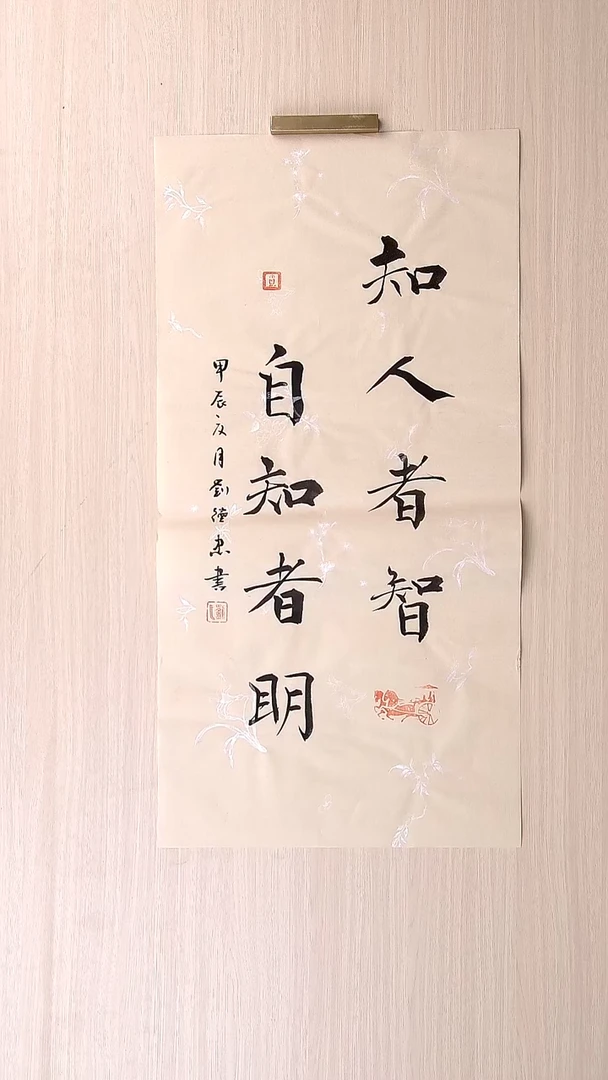 知人者智
自知者明
甲辰夏月劉德忠書